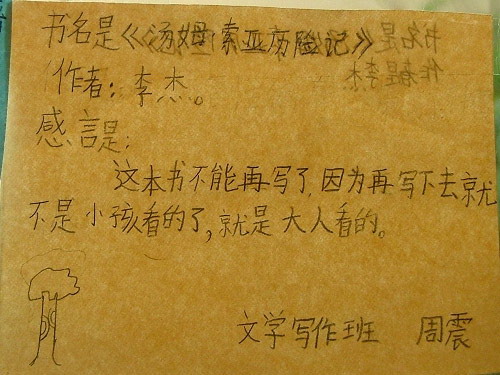 书名是《汤姆索亚历险记》
作者：李杰。
感言是：
这本书不能再写了，因为再写下去就
不是小孩看的了，就是大人看的。
文学写作班 周震